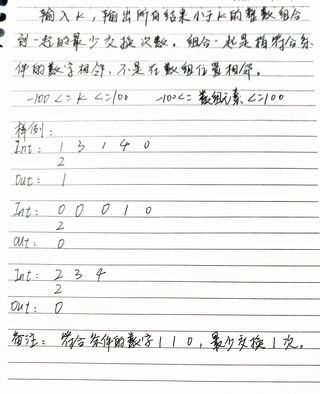 输入K，输出所有结果小于K的整数组合
到一起的最少交换次数。组合一起是指符合条
件的数字相邻，不是在数组位置相邻。
-100 <= K <= 100 -100 <= 数组元素 <= 100
样例：
Int: 1 3 1 4 0
2
Out: 1
Int: 0 0 0 1 0
2
Out: 0
Int: 2 3 4
2
Out: 0
备注：符合条件的数字 1 1 0，最少交换1次。